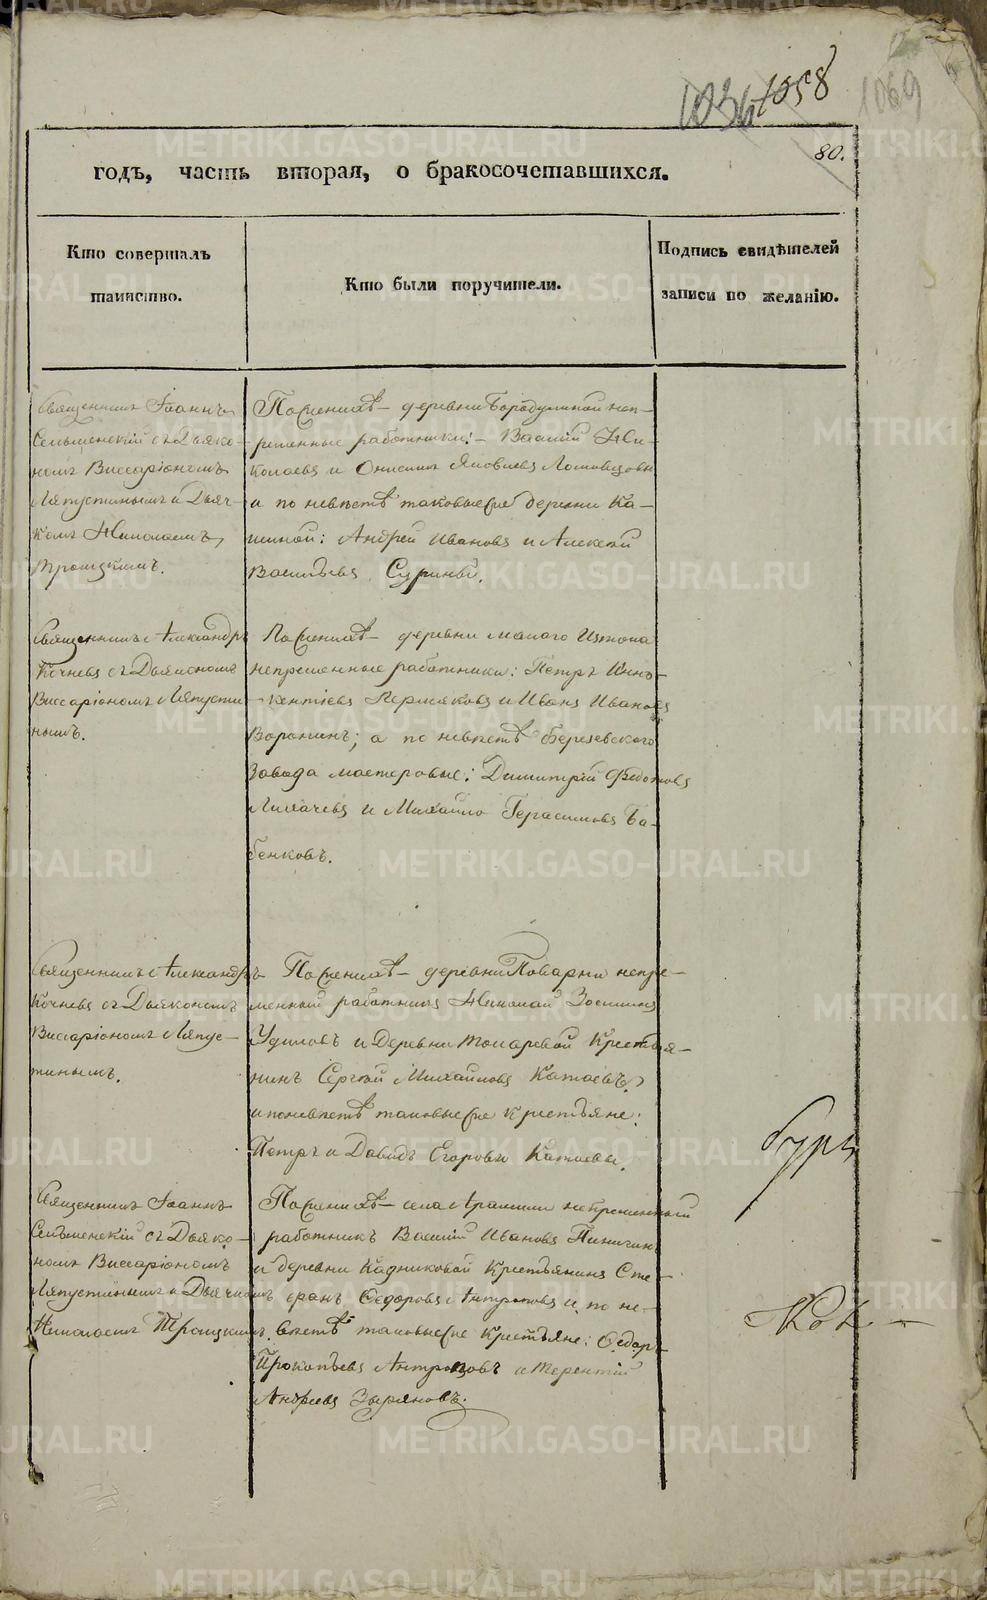 1036 1058 1069
80.
годъ, часть вторая, о бракосочетавшихся.
Кто совершалъ таинство.
Кто были поручители.
Подпись свидѣтелей записи по желанію.
Священникъ Іоаннъ
Сельменскій съ Дьяко-
номъ Виссаріономъ
Ляпустинымъ и Дьяч-
комъ Николаемъ
Троицкимъ.
По женихѣ – деревни Бородулиной неп-
ременные работники: Василій Ни-
колаевъ и Онисимъ Яковлевъ
и по невѣстѣ таковые же деревни Ка-
шиной: Андрей Ивановъ и Алексѣй
Васильевъ Сурины.
Священникъ Александръ
Кочневъ съ Дьякономъ
Виссаріономъ Ляпусти-
нымъ.
По женихѣ – деревни малаго Истока
непременные работники: Петръ Инно-
кентіевъ Пермяковъ и Иванъ Ивановъ
Воронинъ; а по невѣстѣ Березевскаго
Завода мастеровые: Димитрій Федотовъ
Лихачевъ и Михайло Герасимовъ Ба-
бенковъ.
Священникъ Александръ
Кочневъ съ Дьякономъ
Виссаріономъ Ляпус-
тинымъ.
По женихѣ – деревни Поварни непре-
менный работникъ Николай Зосимовъ
Удиловъ и деревни Токаревой Крестья-
нинъ Сергѣй Михайловъ Катаевъ
и по невѣстѣ таковые же крестьяне:
Петръ и Давидъ Егоровы Катаевы.
Священникъ Іоаннъ
Сельменскій съ Дьяко-
номъ Виссаріономъ
Ляпустинымъ и Дьячкомъ
Николаемъ Троицкимъ.
По женихѣ – села Арамили непременный
работникъ Василій Ивановъ Пиничкинъ
и деревни Кадниковой Крестьянинъ Сте-
фанъ Федоровъ Антроповъ и по не-
вѣстѣ таковые же крестьяне: Федоръ
Прокопьевъ Антроповъ и Терентій
Андреевъ Зыряновъ.
METRIKI.GASO-URAL.RU